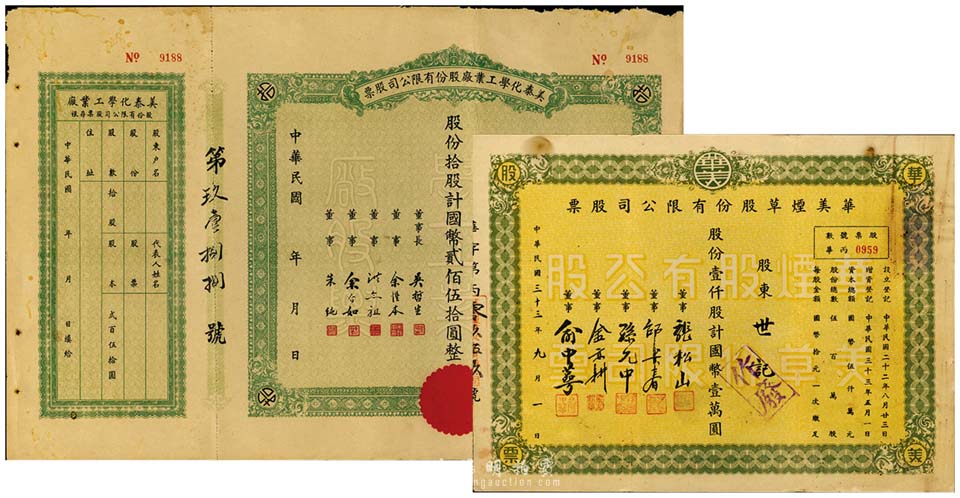 Nº 9188
美泰化學工業廠
股份有限公司股票存根
股東戶名
代表人姓名
股份
股票
股數
拾股
股本
貳百伍拾圓
住址
中華民國 年 月 日填給
第玖壹捌捌號
Nº 9188
美泰化學工業廠股份有限公司股票
股份拾股計國幣貳佰伍拾圓整
董事長
董事
董事
董事
董事 朱純
中華民國 年 月 日
華
美
股
票
華美煙草股份有限公司股票
股票號數
華丙 0959
設立登記 中華民國二十二年八月廿三日
增資登記 中華民國三十三年五月一日
資本總額 國幣伍仟萬元
股份總數 伍百萬股
每股金額 國幣拾元一次繳足
股東 世記
作廢
股份壹仟股計國幣壹萬圓
董事 張松山
董事
董事 孫允中
董事
董事 俞中萼
中華民國三十三年九月一日